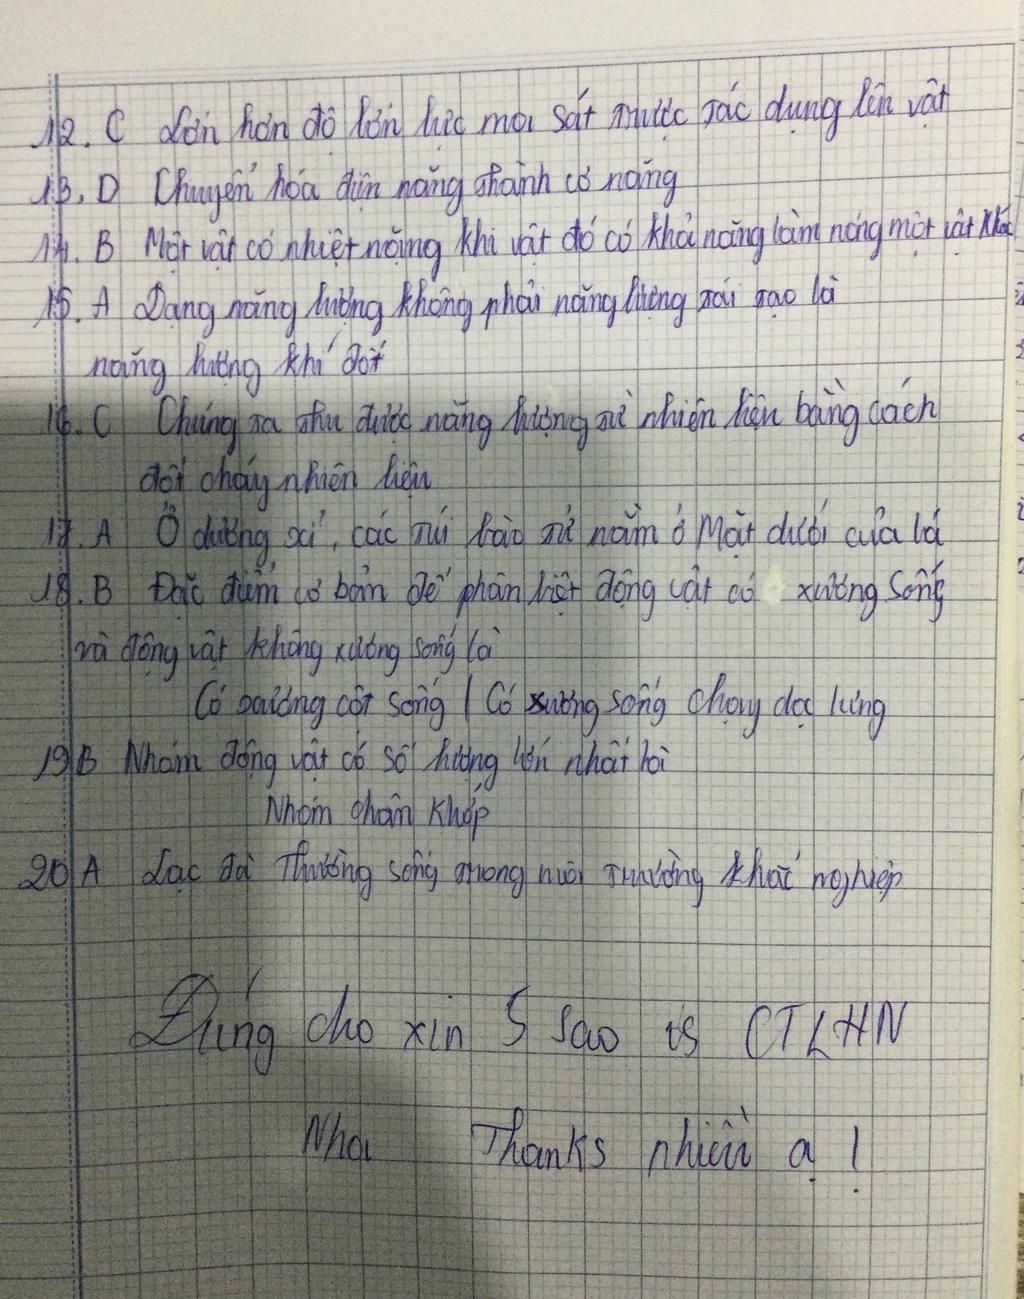 12. C Lớn hơn độ lớn lực ma sát trượt tác dụng lên vật
13. D Chuyển hóa điện năng thành cơ năng
14. B Một vật có nhiệt năng khi vật đó có khả năng làm nóng một vật khác
15. A Dạng năng lượng không phải năng lượng tái tạo là
năng lượng khí đốt
16. C Chúng ta thu được năng lượng từ nhiên liệu bằng cách
đốt cháy nhiên liệu
17. A Ở dương xỉ, các túi bào tử nằm ở Mặt dưới của lá
18. B Đặc điểm cơ bản để phân biệt động vật có xương sống
và động vật không xương sống là
Có xương cột sống / Có xương sống chạy dọc lưng
19 B Nhóm động vật có số lượng lớn nhất là
Nhóm chân khớp
20 A Lạc đà Thường sống trong môi trường khắc nghiệp
Đúng cho xin 5 sao vs CTLHN
Nha Thanks nhiều ạ !